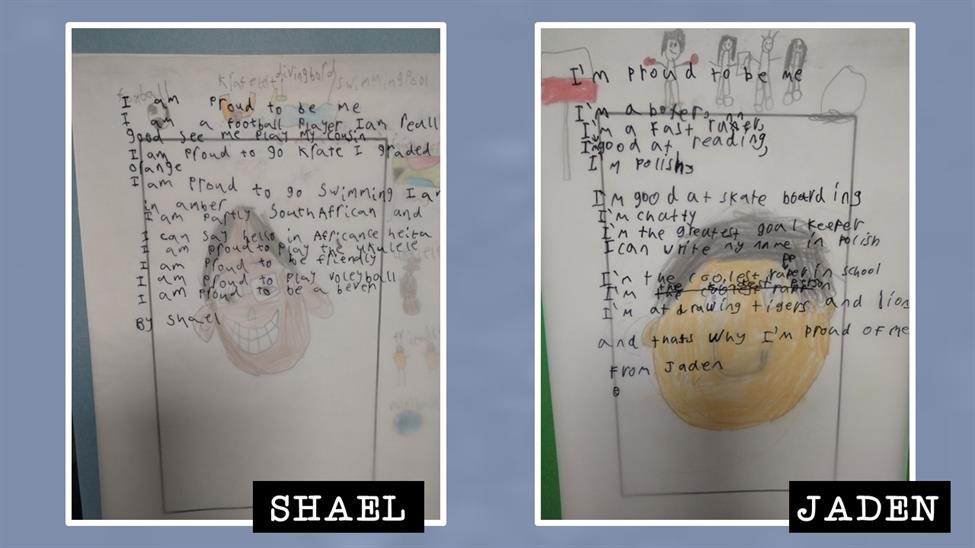 divingbord
swimmingpool
I am proud to be me
I am a football player I am reall
good see me play my cousin
I am proud to go krate I graded
orange
I am proud to go swimming I am
in amber
I am partly South African and
I can say hello in Africance heita
I am proud to play the ukulele
I am proud to be friendly
I am proud to play voleyball
I am proud to be a bever
By Shael
SHAEL
I'm proud to be me
I'm a boxer,
I'm a fast runner,
I'm good at reading,
I'm polish,
I'm good at skate boarding
I'm chatty
I'm the greatest goal keeper
I can write my name in polish
I'm the coolest rapper in school
I'm the
I'm at drawing tigers and lion
and thats why I'm proud of me
From Jaden
JADEN